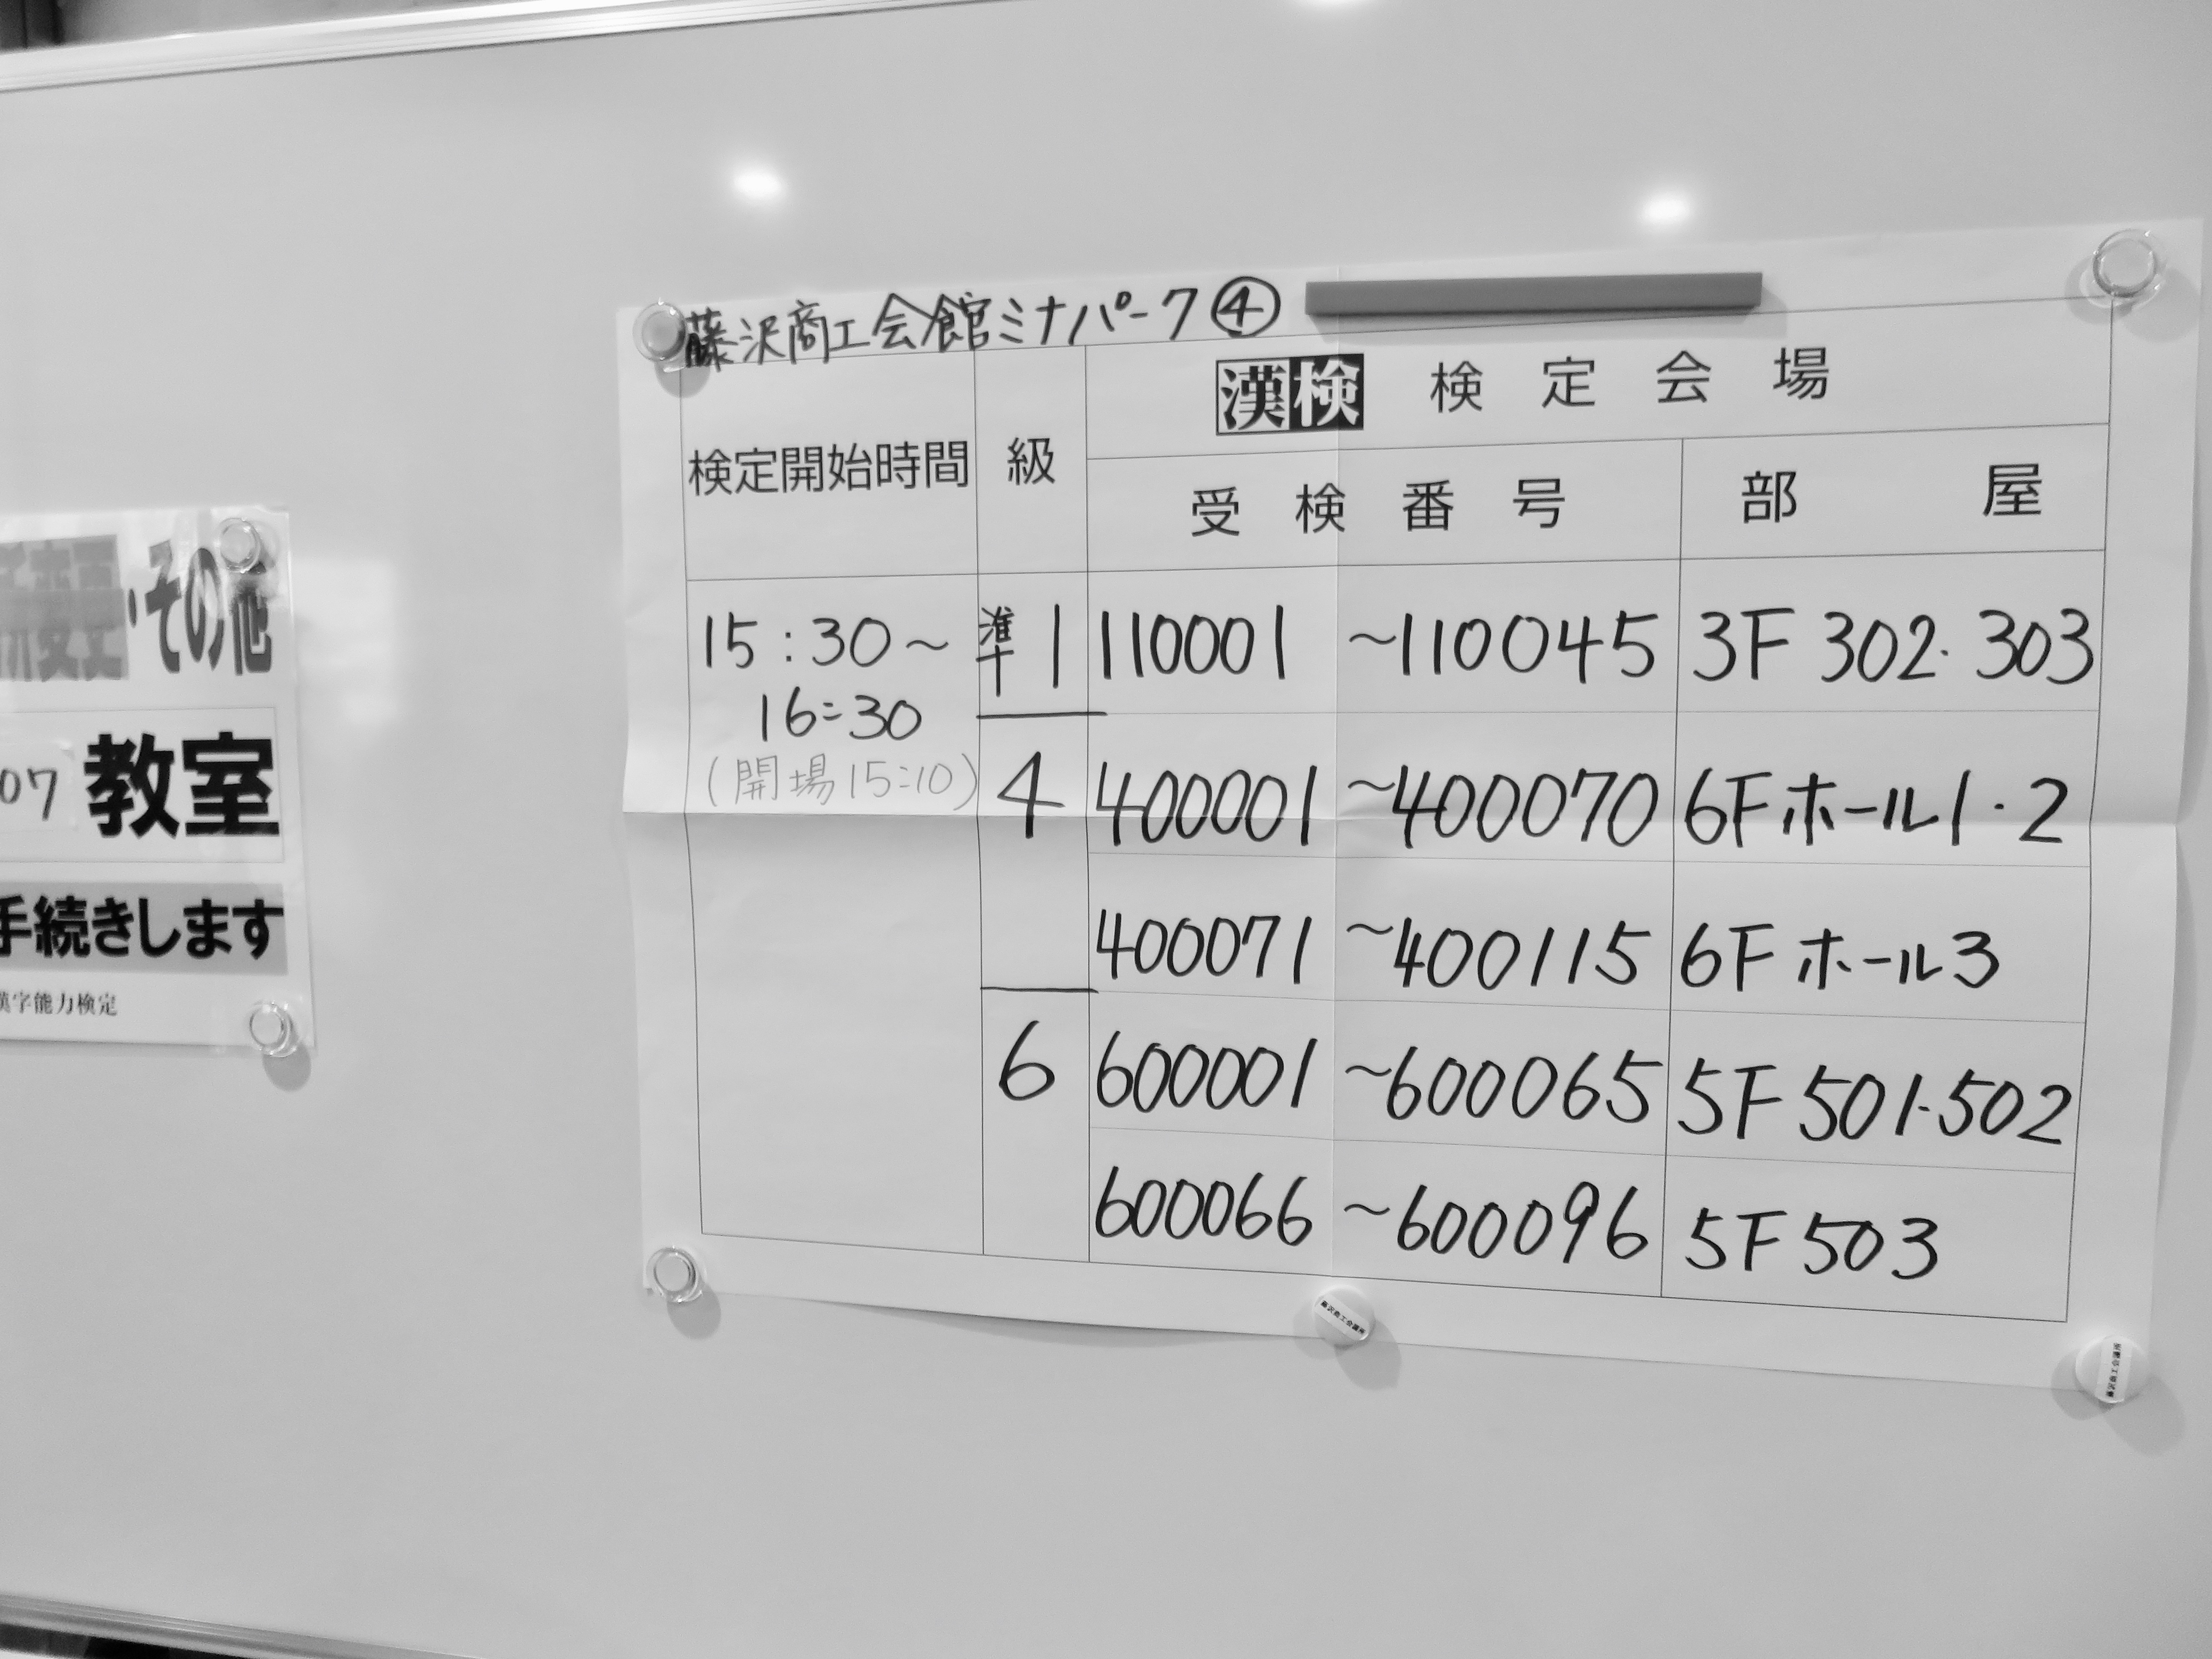 ・その他
07 教室
手続きします
漢字能力検定
藤沢商工会館ミナパーク④
漢検 検定会場
検定開始時間 級
受検番号 部屋
15:30～ 準1 110001 ～110045 3F 302・303
16:30
(開場15:10) 4 400001 ～400070 6Fホール1・2
400071 ～400115 6Fホール3
6 600001 ～600065 5F 501・502
600066 ～600096 5F 503
藤沢商工会議所